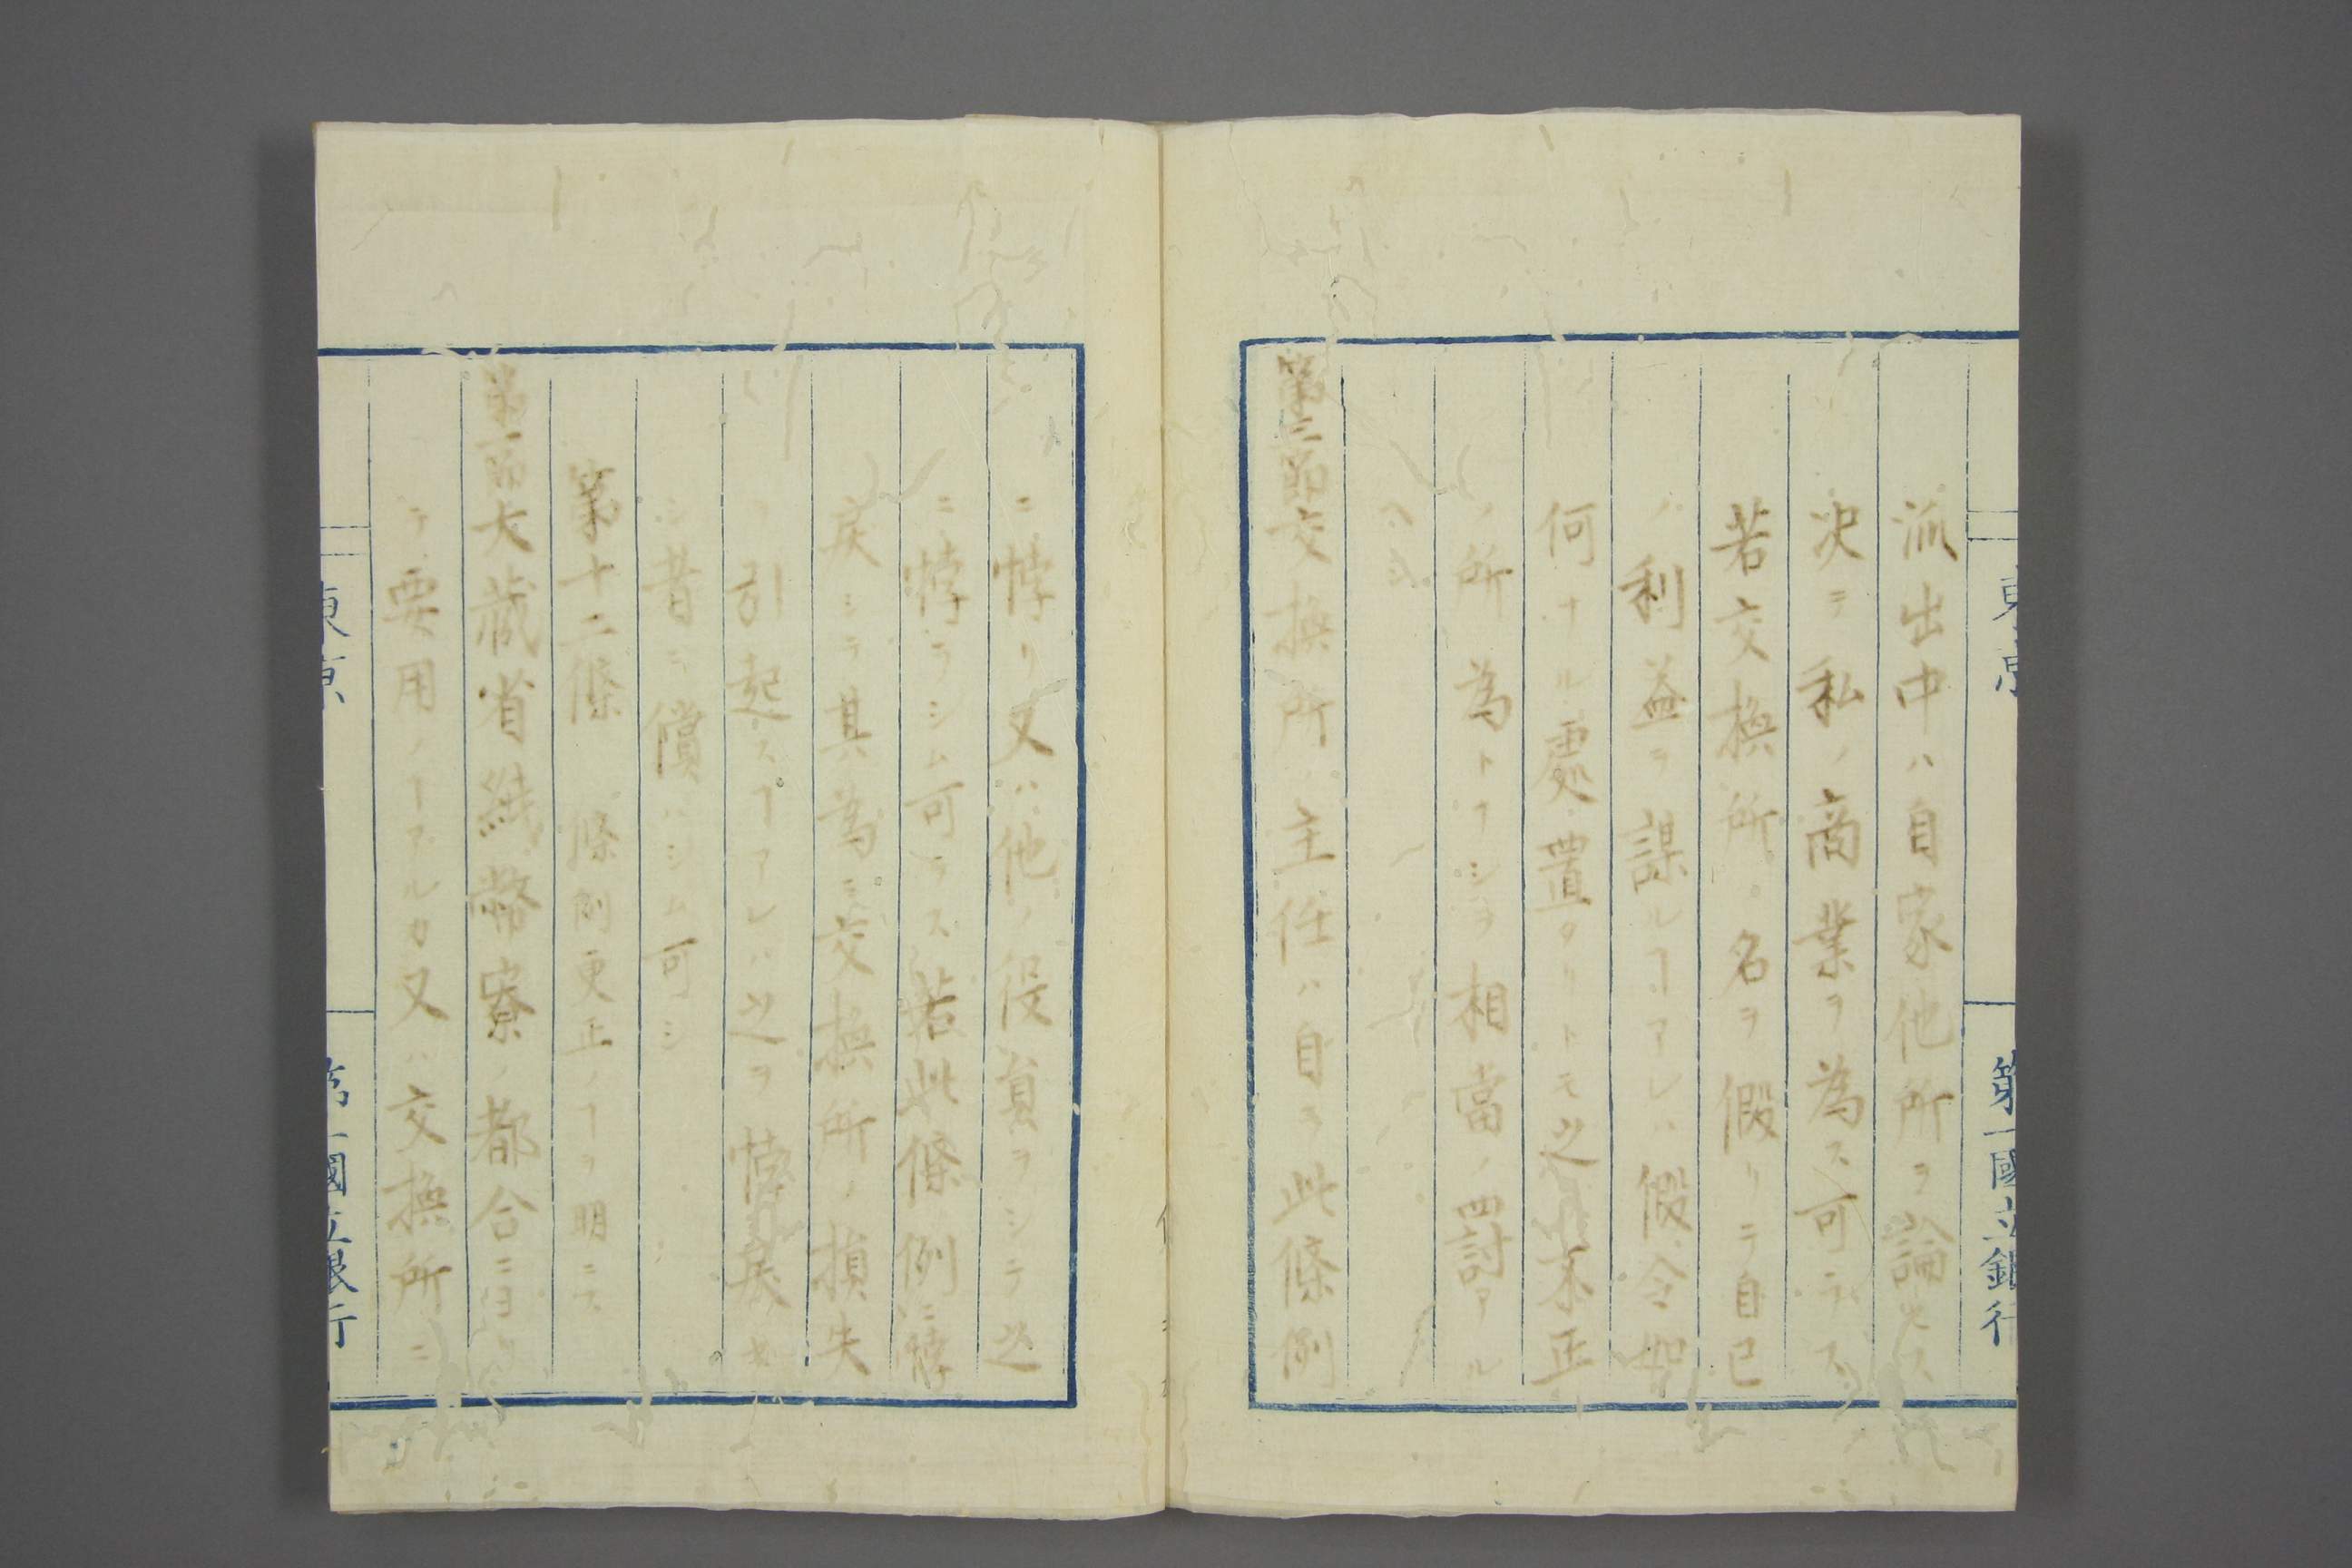 流出中ハ自家他所ヲ論セス
決テ私ノ商業ヲ為ス可ラス
若交換所ノ名ヲ假リテ自己
ノ利益ヲ謀ルヿアレハ假令如
何ナル處置タリトモ之不正
ノ所為トナシヲ相當ノ罰アル
ヘシ
第三節交換所ノ主任ハ自ラ此條例
ニ悖リ又ハ他ノ役員ヲシテ之
ニ悖ラシム可ラス若此條例ニ悖
戻シテ其為ニ交換所ノ損失
ヲ引起スヿアレハ之ヲ悖戻セ
シ者ニ償ハシム可シ
第十二條 條例更正ノヿヲ明ニス
第一節大蔵省紙幣寮ノ都合ニヨリ
テ要用ノヿアルカ又ハ交換所ニ
東京
第一國立銀行